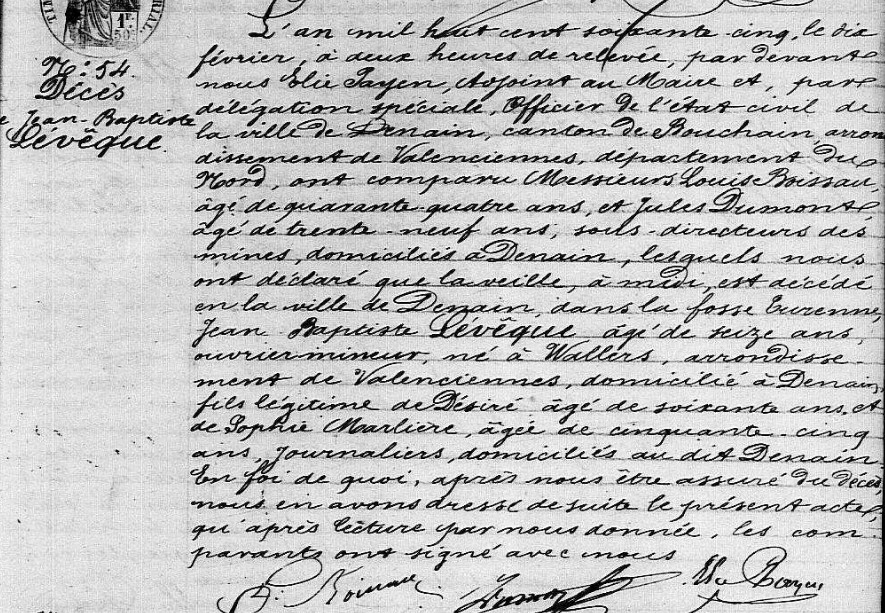 1F.
50c.
N.º 54.
Décès
Jean-Baptiste
Lévêque.
L'an mil huit cent soixante-cinq, le dix
février, à deux heures de relevée, par devant
nous Elie Payen, Adjoint au Maire et, par
délégation spéciale, Officier de l'état civil de
la ville de Denain, canton de Bouchain, arron
dissement de Valenciennes, département du
Nord, ont comparu Messieurs Louis Boissau,
âgé de quarante-quatre ans, et Jules Dumont,
âgé de trente-neuf ans, sous-directeurs des
mines, domiciliés à Denain, lesquels nous
ont déclaré que la veille, à midi, est décédé
en la ville de Denain, dans la fosse Turenne,
Jean-Baptiste Lévêque âgé de seize ans,
ouvrier-mineur, né à Wallers, arrondisse-
ment de Valenciennes, domicilié à Denain,
fils légitime de Désiré âgé de soixante ans, et
de Sophie Marliere, âgée de cinquante-cinq
ans, Journaliers, domiciliés au dit Denain.
En foi de quoi, après nous être assuré du décès,
nous en avons dressé de suite le présent acte,
qu'après lecture par nous donnée, les com-
parants ont signé avec nous
Dumont
Elie Payen